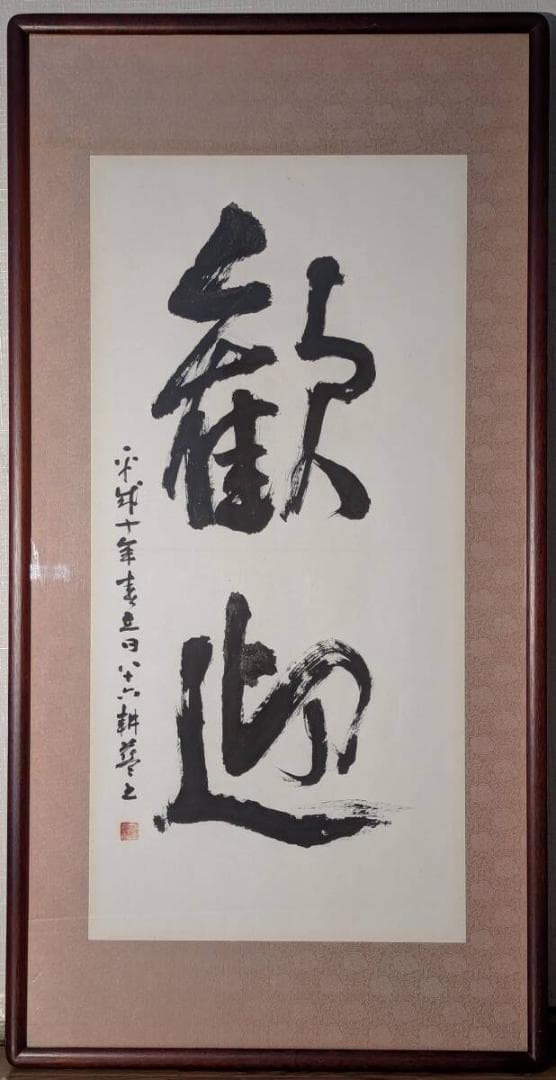 歓迎
平成十年春立日八十六耕